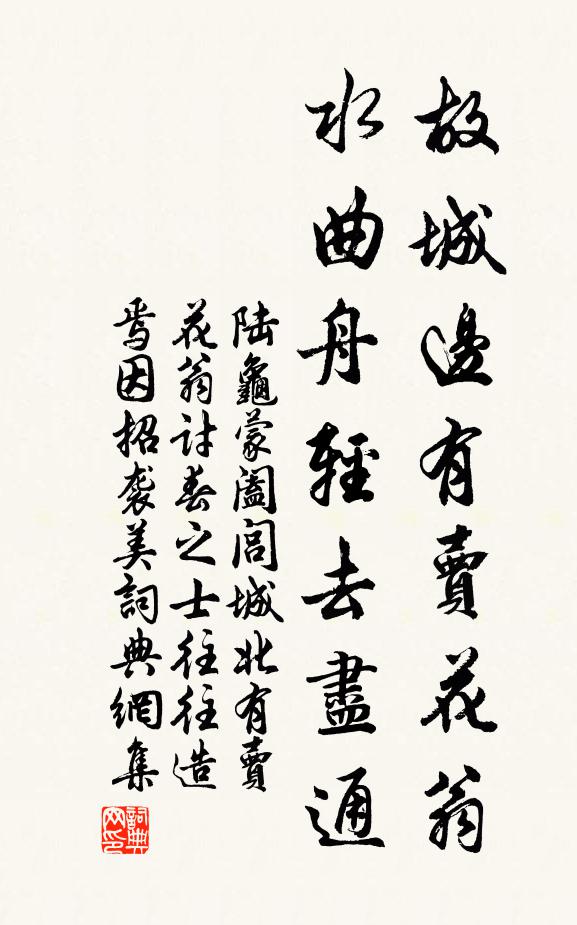 故城邊有賣花翁
水曲舟輕去盡通
陸龜蒙闔閭城北有賣
花翁討春之士往往造
焉因招襲美詞典網集
詞典網印